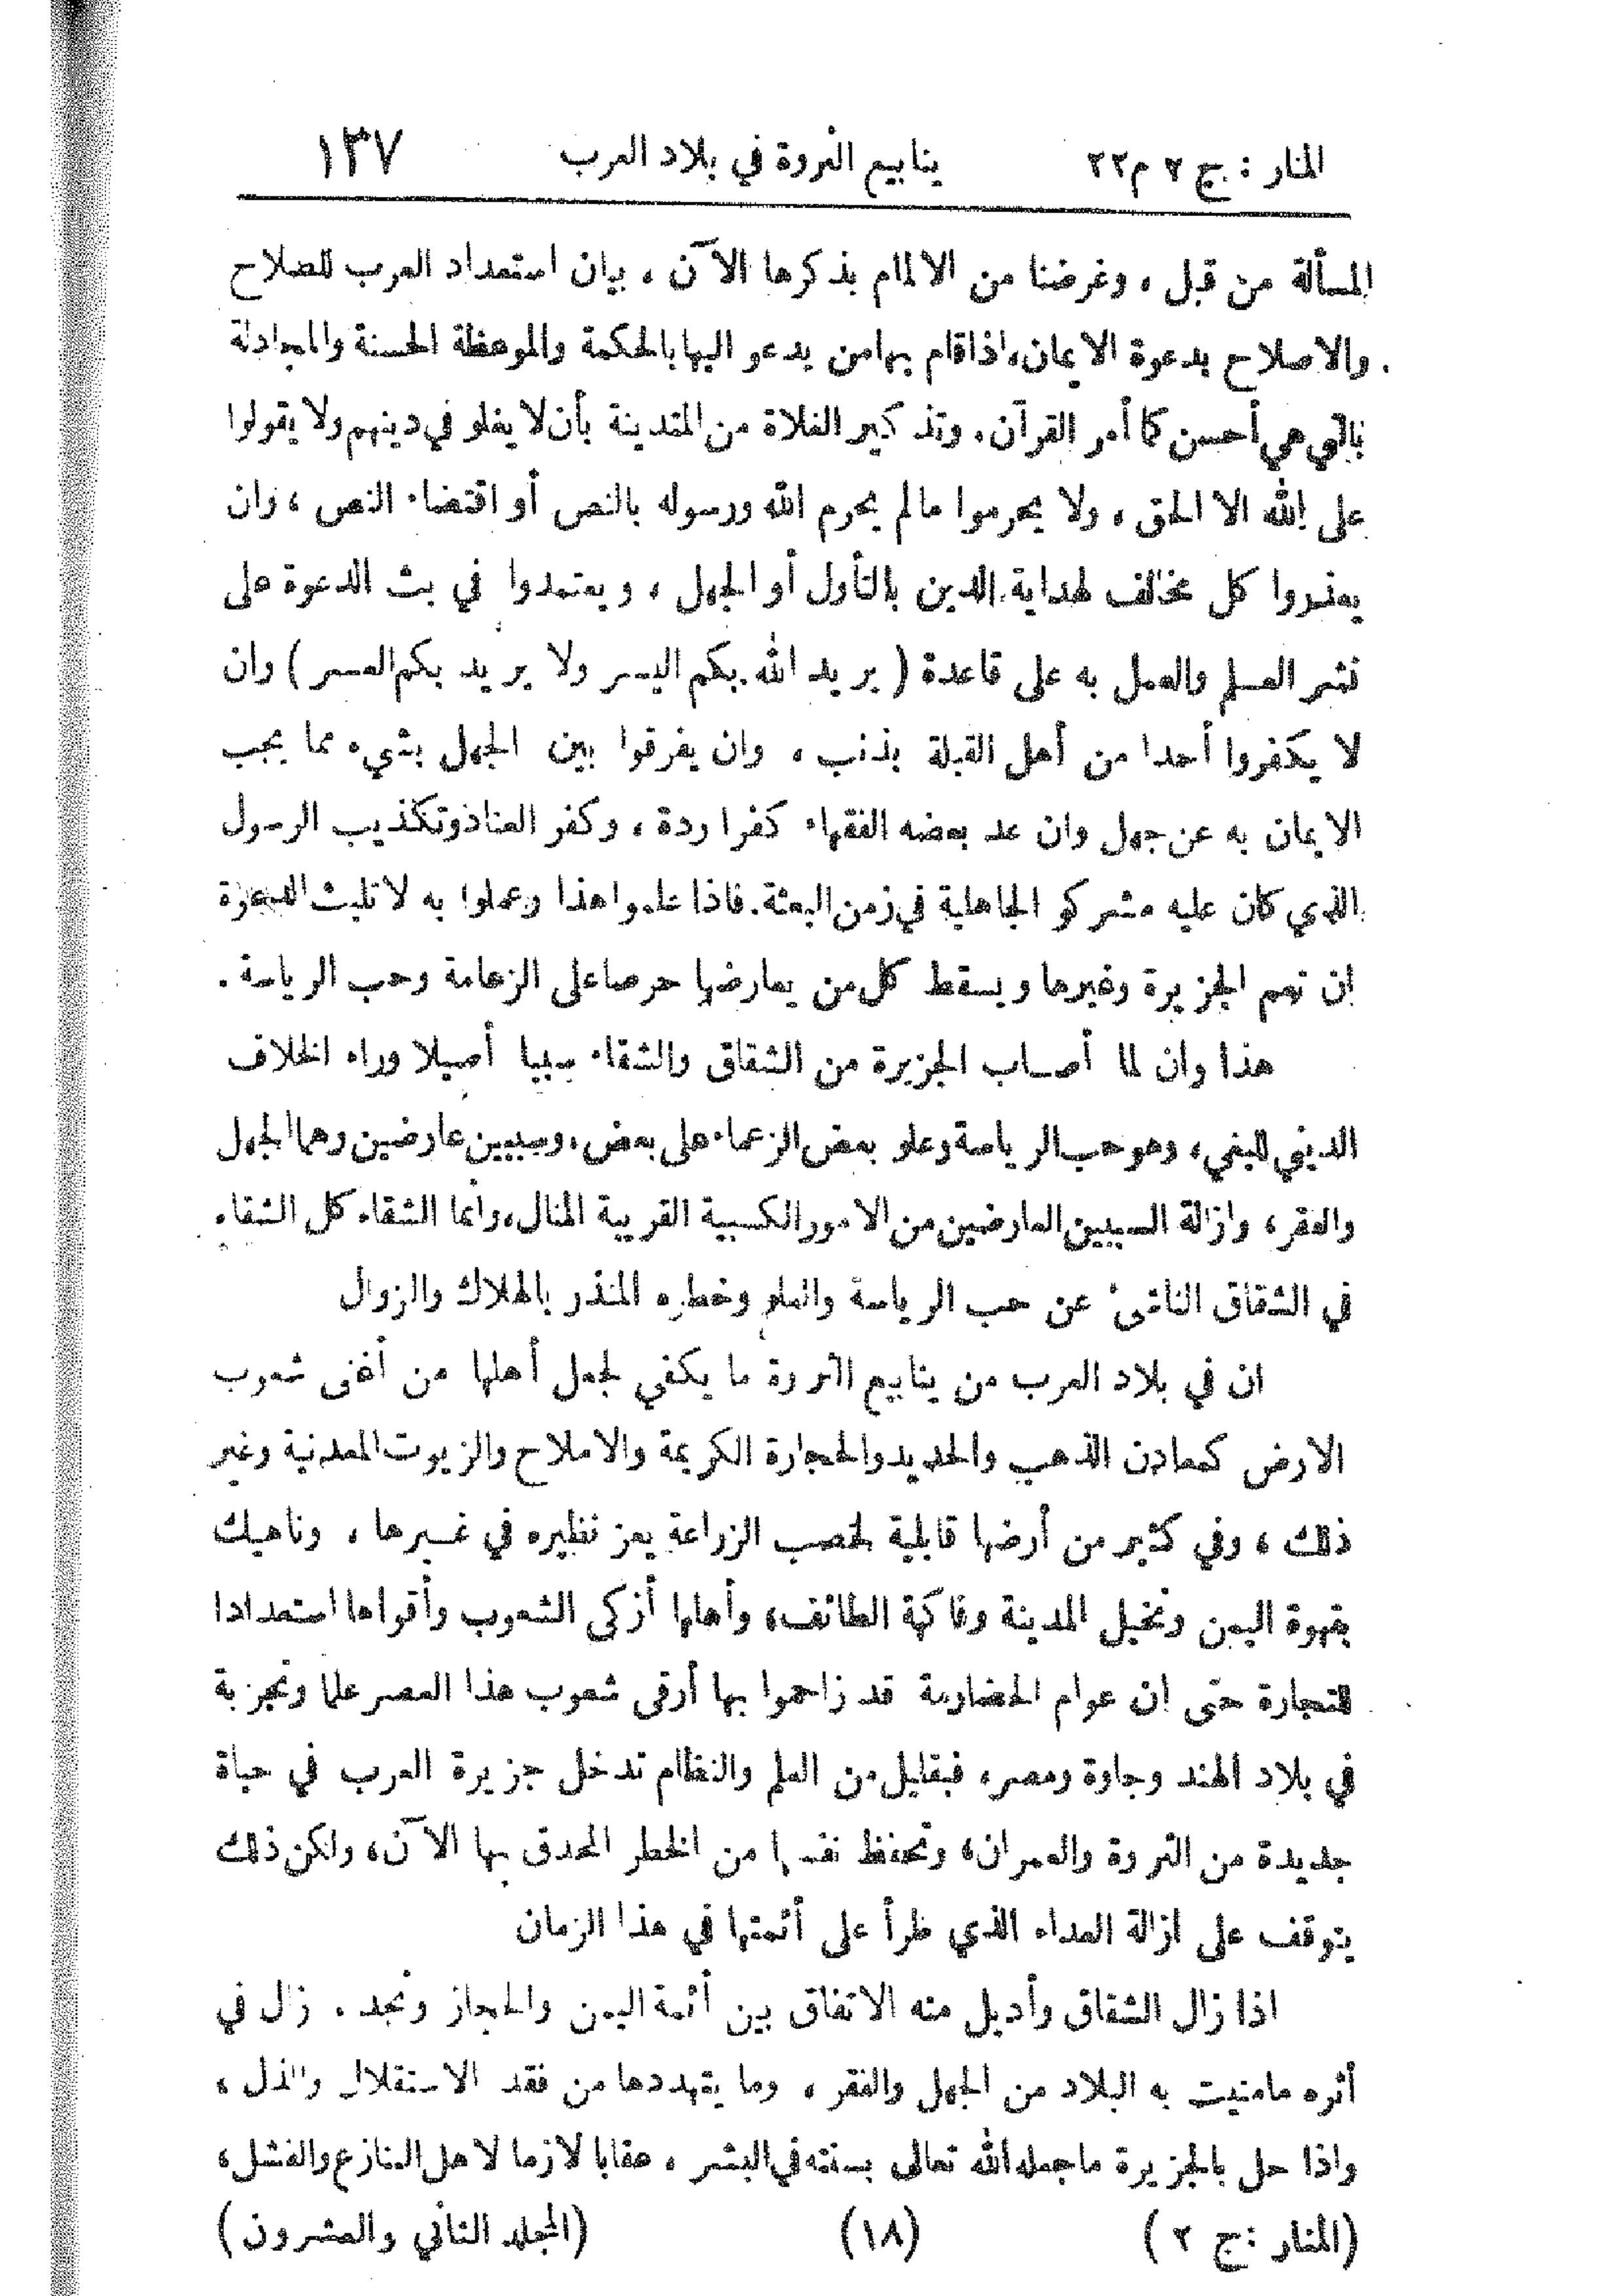 المنار : ج ٢ م ٢٢ ينابيع الثروة في بلاد العرب ١٣٧
المسألة من قبل ، وغرضنا من الالمام بذكرها الآن ، بيان استعداد العرب للصلاح
والاصلاح بدعوة الايمان، اذا قام بها من يدعو اليها بالحكمة والموعظة الحسنة والمجادلة
بالتي هي أحسن كما أمر القرآن. وتذكير الغلاة من المتدينة بأن لا يغلو في دينهم ولا يقولوا
على الله الا الحق ، ولا يحرموا مالم يحرم الله ورسوله بالنص أو اقتضاء النص ، وان
يعذروا كل مخالف لهداية الدين بالتأول أو الجهل ، ويعتمدوا في بث الدعوة على
نشر العلم والعمل به على قاعدة ( يريد الله بكم اليسر ولا يريد بكم العسر ) وان
لا يكفروا أحدا من أهل القبلة بذنب ، وان يفرقوا بين الجهل بشيء مما يجب
الايمان به عن جهل وان عد بعضه الفقهاء كفرا ردة ، وكفر العناد وتكذيب الرسول
الذي كان عليه مشركو الجاهلية في زمن البعثة. فاذا علموا هذا وعملوا به لا تلبث الدعوة
ان تعم الجزيرة وغيرها ويسقط كل من يعارضها حرصا على الزعامة وحب الرياسة .
هذا وان لما أصاب الجزيرة من الشقاق والشقاء سببا أصيلا وراء الخلاف
الديني للبني ، وهو حب الرياسة وعلو بعض الزعماء على بعض، وسببين عارضين وهما الجهل
والفقر، وازالة السببين العارضين من الامور الكسبية القريبة المنال، وانما الشقاء كل الشقاء
في الشقاق الناشىء عن حب الرياسة والعلو وخطره المنذر بالهلاك والزوال
ان في بلاد العرب من ينابيع الثروة ما يكفي لجعل أهلها من أغنى شعوب
الارض كمعادن الذهب والحديد والحجارة الكريمة والاملاح والزيوت المعدنية وغير
ذلك ، وفي كثير من أرضها قابلية لخصب الزراعة يعز نظيره في غيرها ، وناهيك
بقهوة اليمن ونخيل المدينة وفاكهة الطائف، وأهلها أزكى الشعوب وأقواها استعدادا
للتجارة حتى ان عوام الحضارمة قد زاحموا بها أرقى شعوب هذا العصر علما وتجربة
في بلاد الهند وجاوة ومصر، فبقليل من العلم والنظام تدخل جزيرة العرب في حياة
جديدة من الثروة والعمران، وتحفظ نفسها من الخطر المحدق بها الآن، ولكن ذلك
يتوقف على ازالة العداء الذي طرأ على أئمتها في هذا الزمان
اذا زال الشقاق وأديل منه الاتفاق بين أئمة اليمن والحجاز ونجد . زال في
أثره مامنيت به البلاد من الجهل والفقر ، وما يتهددها من فقد الاستقلال والذل ،
واذا حل بالجزيرة ما جعله الله تعالى بسنته في البشر ، عقابا لازما لاهل التنازع والفشل،
(المنار :ج ٢ ) (١٨) (المجلد الثاني والعشرون)